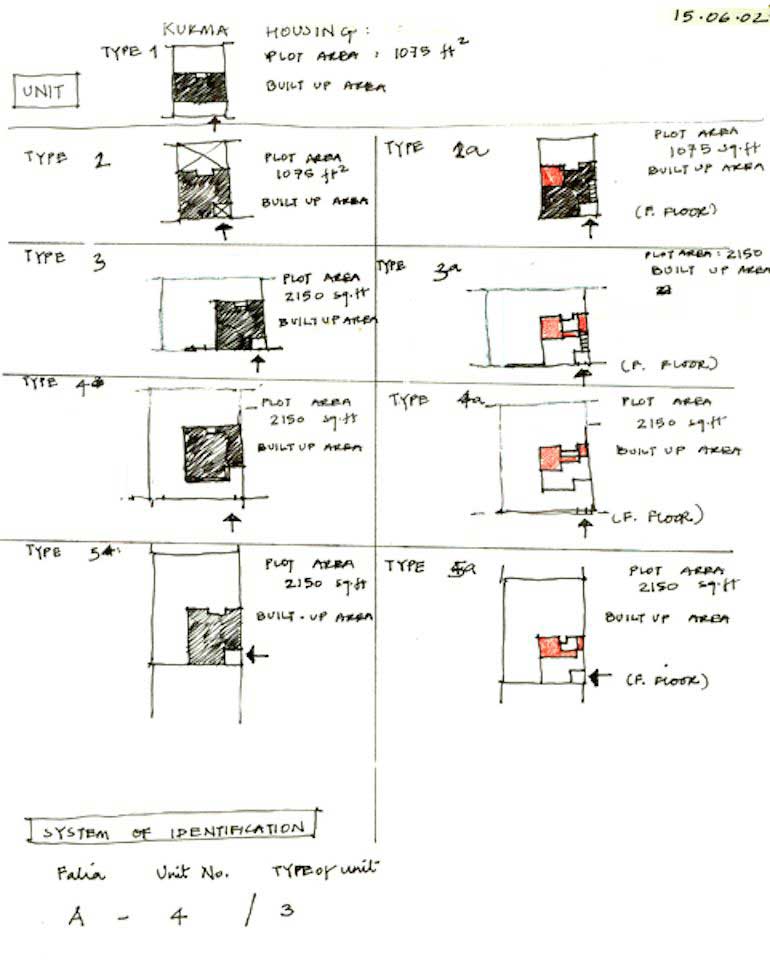 15.06.02
KURMA HOUSING:
TYPE 1
PLOT AREA : 1075 ft²
UNIT
BUILT UP AREA
TYPE 2
PLOT AREA
1075 ft²
BUILT UP AREA
TYPE 2a
PLOT AREA
1075 sq.ft
BUILT UP AREA
(F. FLOOR)
TYPE 3
PLOT AREA
2150 sq.ft
BUILT UP AREA
TYPE 3a
PLOT AREA: 2150
BUILT UP AREA
(F. FLOOR)
TYPE 4
PLOT AREA
2150 sq.ft
BUILT UP AREA
TYPE 4a
PLOT AREA
2150 sq.ft
BUILT UP AREA
(F. FLOOR)
TYPE 5
PLOT AREA
2150 sq.ft
BUILT-UP AREA
TYPE 5a
PLOT AREA
2150 sq.ft
BUILT UP AREA
(F. FLOOR)
SYSTEM OF IDENTIFICATION
Falia Unit No. TYPE of unit
A - 4 / 3